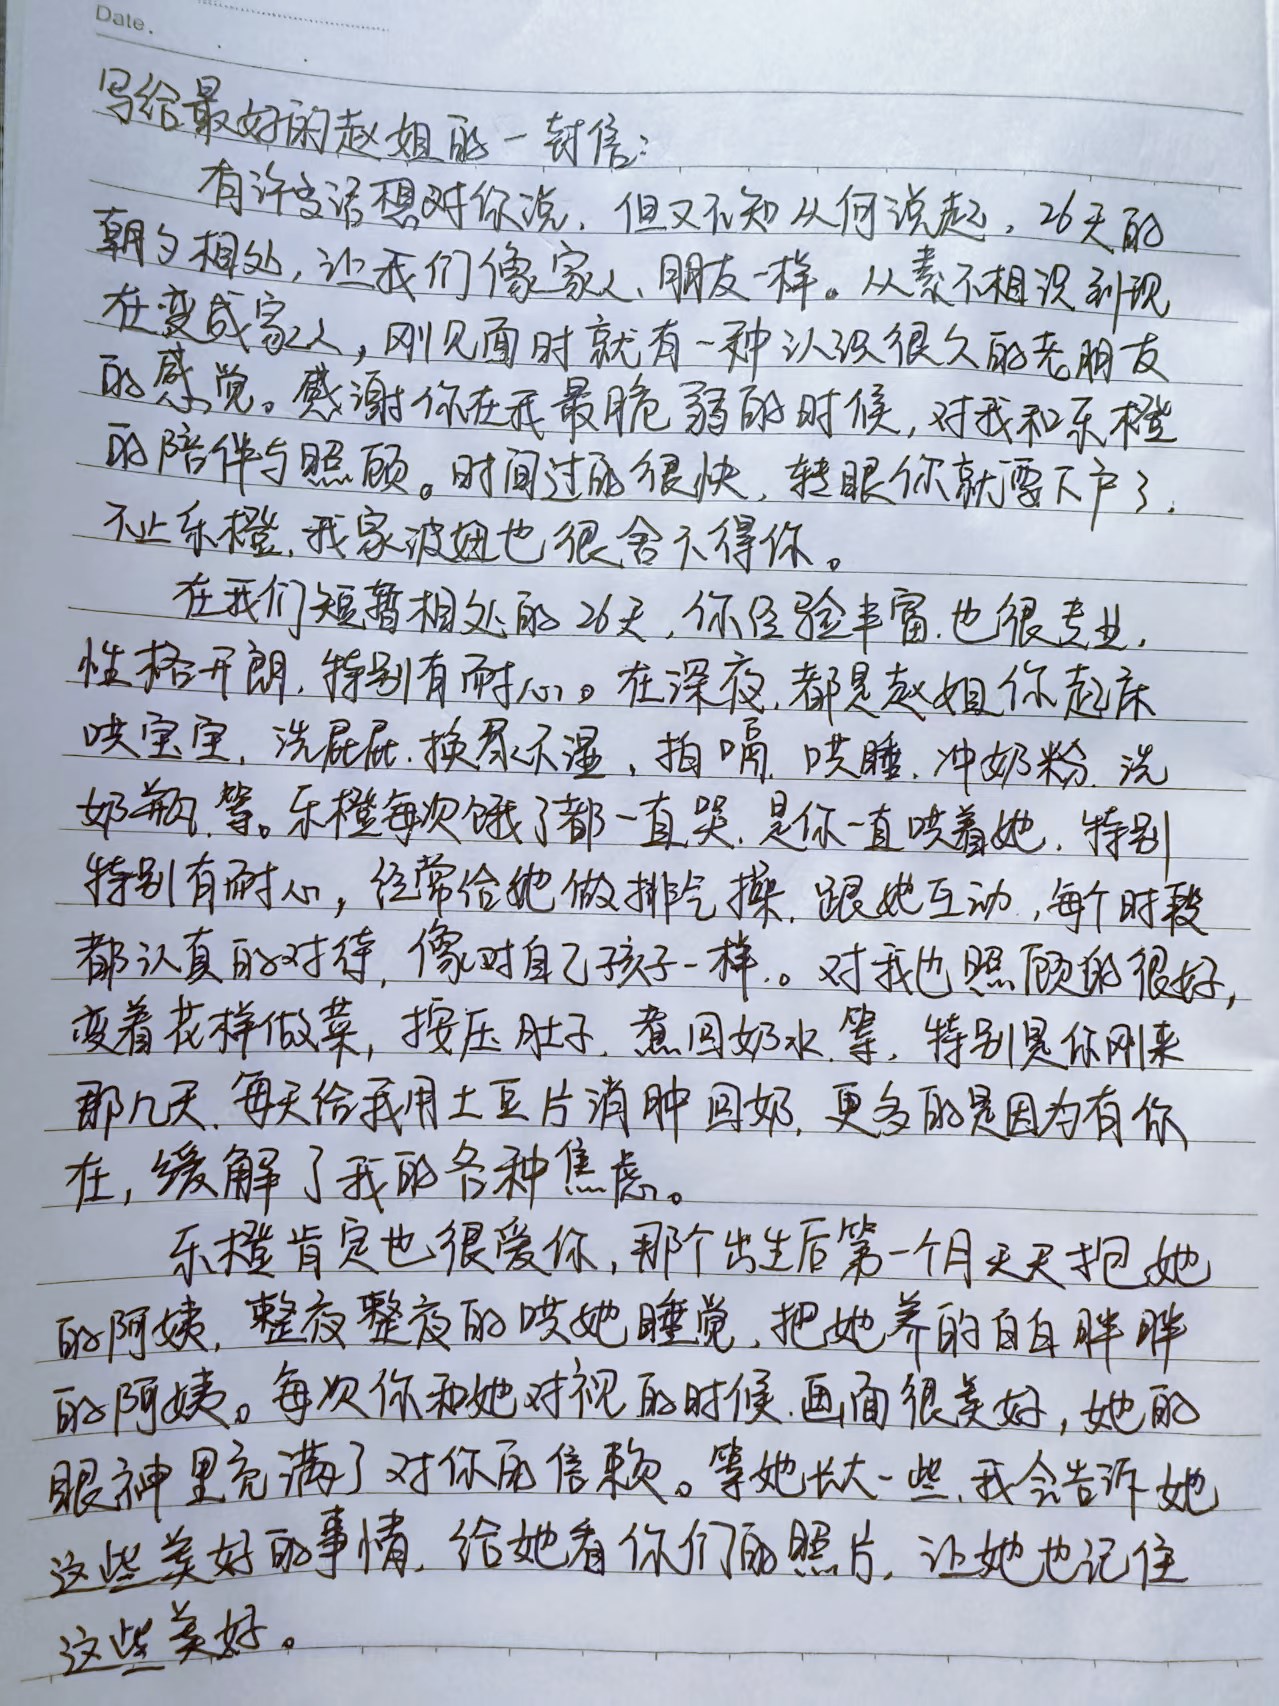 Date.
写给最好的赵姐的一封信:
有许多话想对你说,但又不知从何说起,26天的
朝夕相处,让我们像家人、朋友一样。从素不相识到现
在变成家人,刚见面时就有一种认识很久的老朋友
的感觉。感谢你在我最脆弱的时候,对我和乐橙
的陪伴与照顾。时间过的很快,转眼你就要下户了,
不止乐橙,我家波妞也很舍不得你。
在我们短暂相处的26天,你经验丰富,也很专业,
性格开朗,特别有耐心。在深夜,都是赵姐你起床
哄宝宝,洗屁屁、换尿不湿,拍嗝、哄睡、冲奶粉、洗
奶瓶、等。乐橙每次饿了都一直哭,是你一直哄着她,特别
特别有耐心,经常给她做排气操,跟她互动,每个时段
都认真的对待,像对自己孩子一样。对我也照顾的很好,
变着花样做菜,按压肚子、煮回奶水、等,特别是你刚来
那几天,每天给我用土豆片消肿回奶,更多的是因为有你
在,缓解了我的各种焦虑。
乐橙肯定也很爱你,那个出生后第一个月天天抱她
的阿姨,整夜整夜的哄她睡觉,把她养的白白胖胖
的阿姨。每次你和她对视的时候,画面很美好,她的
眼神里充满了对你的信赖。等她长大一些,我会告诉她
这些美好的事情,给她看你们的照片,让她也记住
这些美好。